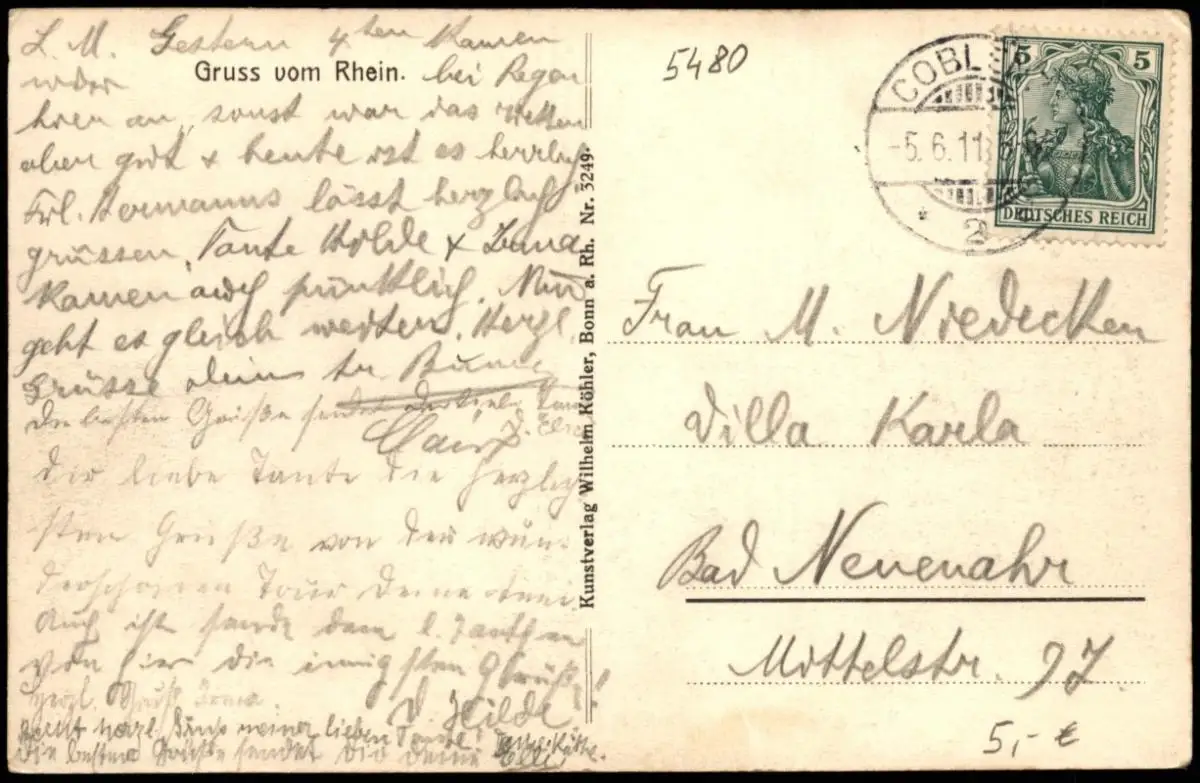 L. M. Gestern 4ten kamen
Gruss vom Rhein.
wir bei Regen
hier an, sonst war das Wetter
aber gut + heute ist es herrlich
Frl. Hermanns lässt herzlich
grüssen, Tante Hilde + Irma
kamen auch pünktlich. Nun
geht es gleich weiter. Herzl.
Grüsse
Die besten Grüße sendet
Dir liebe Tante die herzlich-
sten Grüße von der wun-
derschönen Tour Deine
Auch ich sende dem l. Tantchen
von hier die innigsten Grüße!
herzl. Gruß Irma.
D. Hilde!
Recht herzl. Gruß meiner lieben Tante!
Die besten Grüße sendet Dir Deine Elli
Kunstverlag Wilhelm Köhler, Bonn a. Rh. Nr. 3249.
5480
COBLE
-5.6.11.
* 2
5 5
DEUTSCHES REICH
Frau M. Niedecken
Villa Karla
Bad Neuenahr
Mittelstr. 97.
5,- €